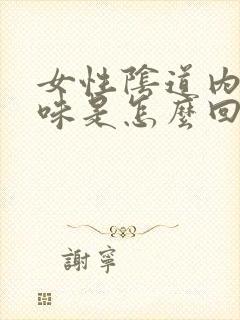 女性陰道內
味是怎麼回
謝寧